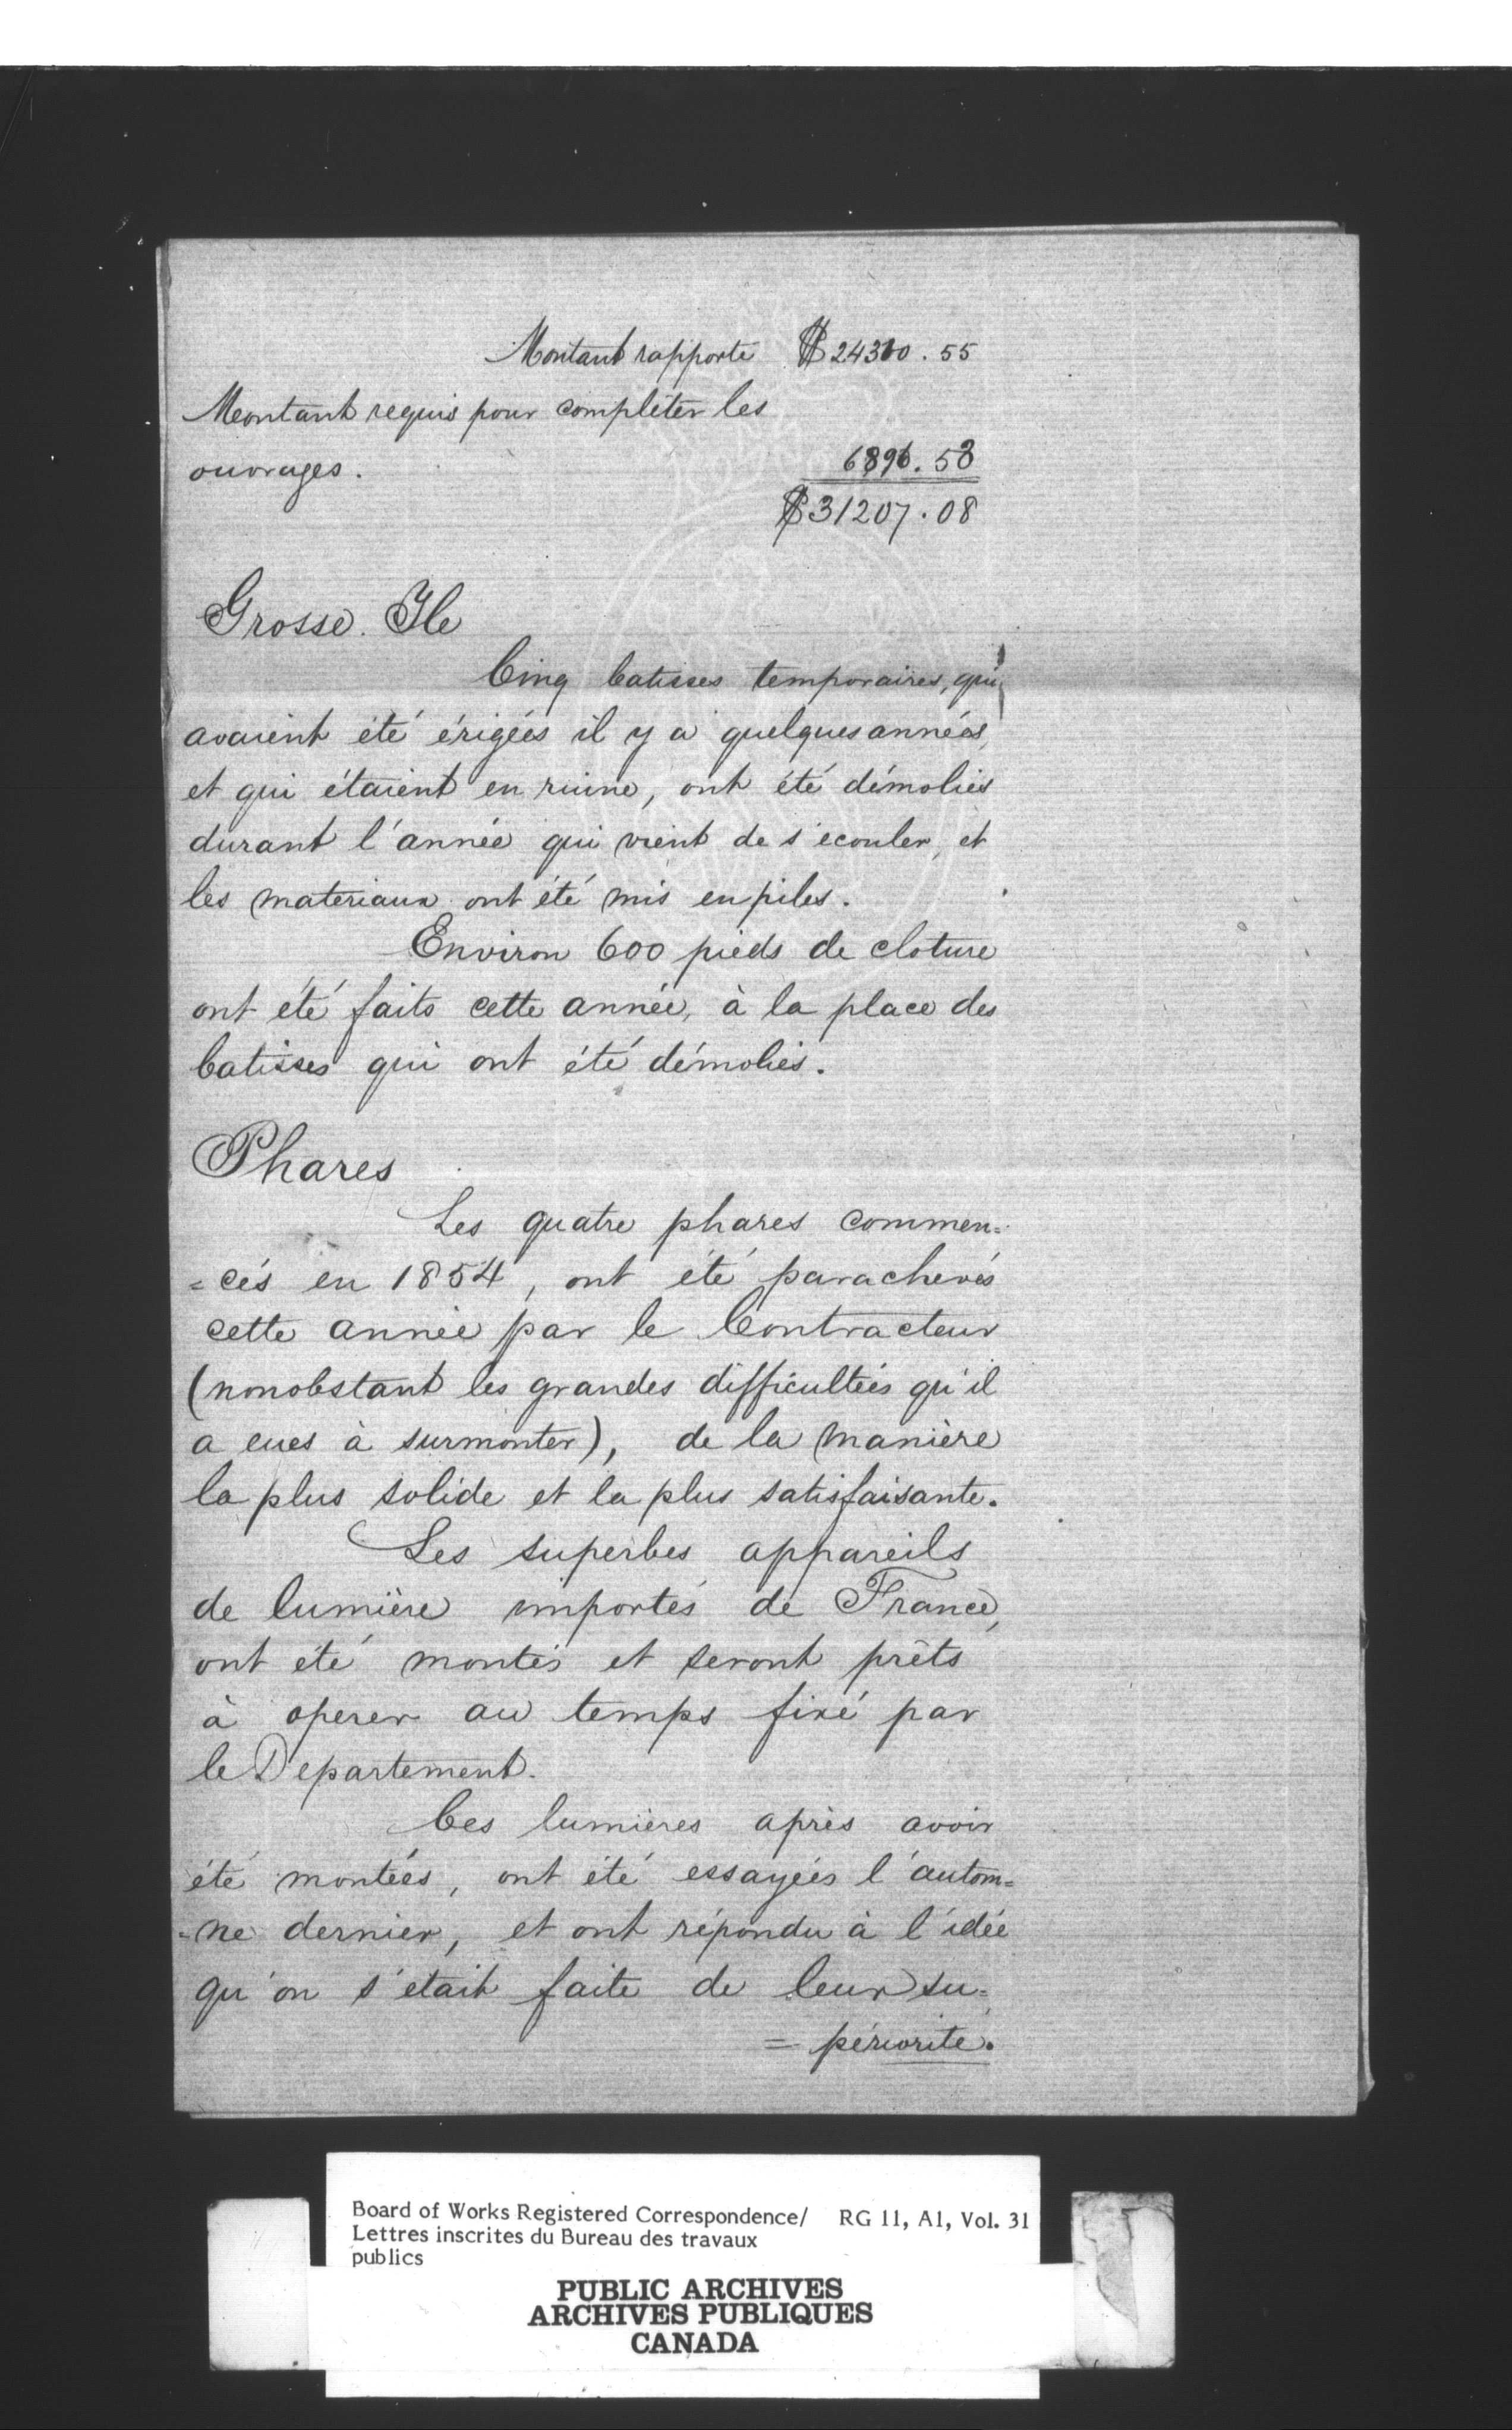 Montant rapporte $24310.55
Montant requis pour compléter les
ouvrages. 6896.53
$31207.08
Grosse. Ile
Cinq batisses temporaires, qui
avaient été érigées il y a quelques années,
et qui étaient en ruine, ont été démolies
durant l'année qui vient de s'ecouler, et
les materiaux ont été mis en piles.
Environ 600 pieds de cloture
ont été faits cette année, à la place des
batisses qui ont été démolies.
Phares
Les quatre phares commen=
=cés en 1854, ont été parachevés
cette année par le Contracteur
(nonobstant les grandes difficultées qu'il
a eues à surmonter), de la manière
la plus solide et la plus satisfaisante.
Les superbes appareils
de lumière importés de France,
ont été montés et seront prêts
à operer au temps fixé par
le Departement.
Ces lumières après avoir
été montées, ont été essayées l'autom=
=ne dernier, et ont répondu à l'idée
qu'on s'etait faite de leur su=
=périorité.
Board of Works Registered Correspondence/ RG 11, A1, Vol. 31
Lettres inscrites du Bureau des travaux
publics
PUBLIC ARCHIVES
ARCHIVES PUBLIQUES
CANADA